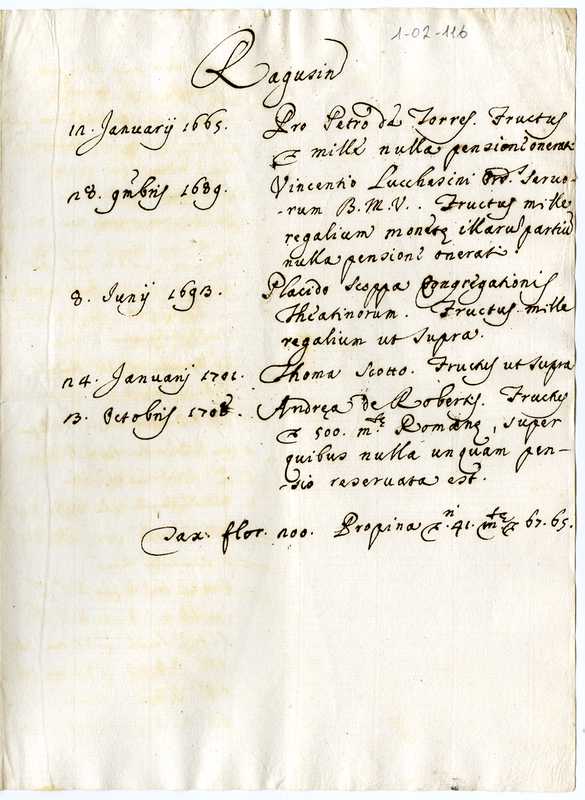 1-02-116
Ragusin
12. Januarij 1665. Pro Petro de Torres. Fructus
mille nulla pensione onerat.
28. 9mbris 1689. Vincentio Lucchesini Ord. Servo-
-rum B.M.V.. Fructus mille
regalium monetę illarũ partiũ
nulla pensione onerati.
8. Junij 1693. Placido Scoppa Congregationis
Theatinorum. Fructus mille
regalium ut supra.
24. Januarij 1701. Thoma Scotto. Fructus ut supra
13. Octobris Andrea de Robertis. Fructus
500. mtę Romanę, super
quibus nulla unquam pen-
-sio reservata est.
Tax. flor. 200. Propina n. 41. mtę 67.65.